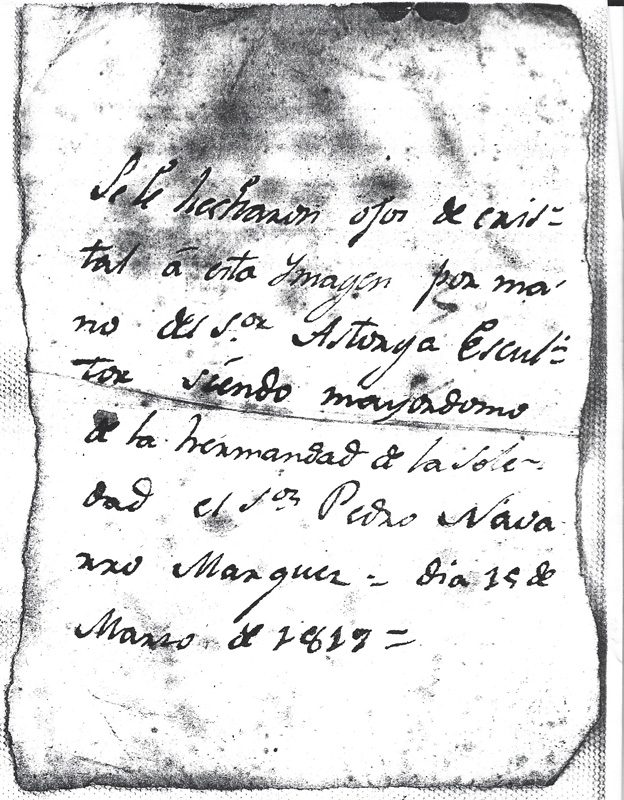 Se le hecharon ojos de cris-
tal á esta Ymagen por ma-
no del S.or Astorga Escul-
tor siendo mayordomo
de la hermandad de la Sole-
dad el S.or Pedro Nava
rro Marquez - dia 15 de
Marzo de 1817 =